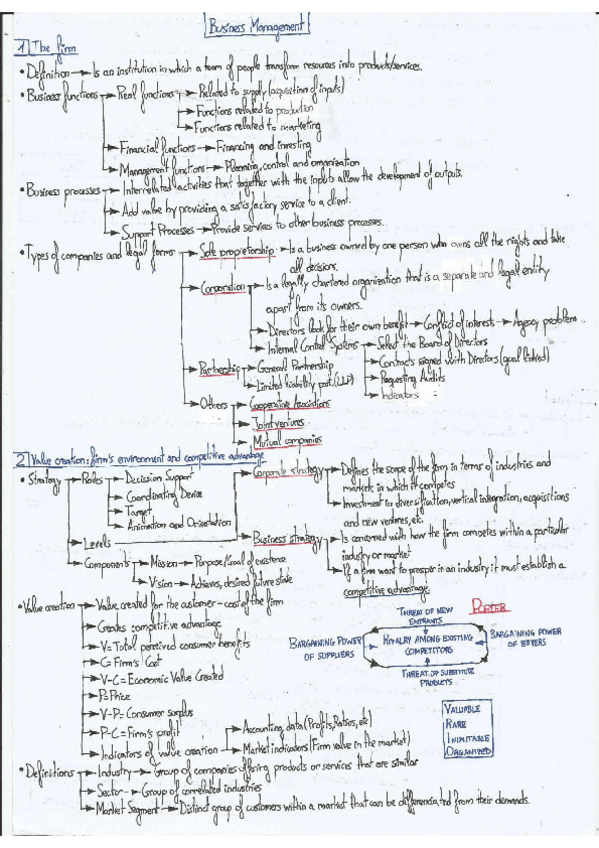 Business Management
1] The firm
• Definition → Is an institution in which a team of people transform resources into products/services.
• Business functions → Real functions → Related to supply (acquisition of inputs)
→ Functions related to production
→ Functions related to marketing
→ Financial functions → Financing and investing
→ Management functions → Planning, control and organization
• Business processes → Interrelated activities that together with the inputs allow the development of outputs.
→ Add value by providing a satisfactory service to a client.
→ Support Processes → Provide services to other business processes.
• Types of companies and legal forms → Sole proprietorship → Is a business owned by one person who owns all the rights and take
all decisions.
→ Corporation → Is a legally chartered organization that is a separate and legal entity
apart from its owners.
→ Directors look for their own benefit → Conflict of interests → Agency problem
→ Internal Control Systems → Select the Board of Directors
→ Contracts signed with Directors (goal linked)
→ Requesting Audits
→ Indicators
→ Partnership → General Partnership
→ Limited liability part. (LLP)
→ Others → Cooperative Associations
→ Joint ventures
→ Mutual companies
2] Value creation: firm's environment and competitive advantage
• Strategy → Roles → Decission Support
→ Coordinating Device
→ Target
→ Animation and Orientation
→ Levels
→ Corporate strategy → Defines the scope of the firm in terms of industries and
markets in which it competes
→ Investment in diversification, vertical integration, acquisitions
and new ventures, etc.
→ Business strategy → Is concerned with how the firm competes within a particular
industry or market
→ If a firm want to prosper in an industry it must establish a
competitive advantage
→ Components → Mission → Purpose/Goal of existence
→ Vision → Achieve, desired future state
• Value creation → Value created for the customer - cost of the firm
→ Creates: competitive advantage
→ V = Total perceived consumer benefits
→ C = Firm's Cost
→ V-C = Economic Value Created
→ P = Price
→ V-P = Consumer surplus
→ P-C = Firm's profit
→ Indicators of value creation → Accounting data (Profits, Ratios, etc)
→ Market indicators (Firm value in the market)
PORTER
THREAT OF NEW
ENTRANTS
BARGAINING POWER
OF SUPPLIERS
RIVALRY AMONG EXISTING
COMPETITORS
BARGAINING POWER
OF BUYERS
THREAT OF SUBSTITUTE
PRODUCTS
VALUABLE
RARE
INIMITABLE
ORGANIZED
• Definitions → Industry → Group of companies offering products or services that are similar
→ Sector → Group of correlated industries
→ Market Segment → Distinct group of customers within a market that can be differenciated from their demands.